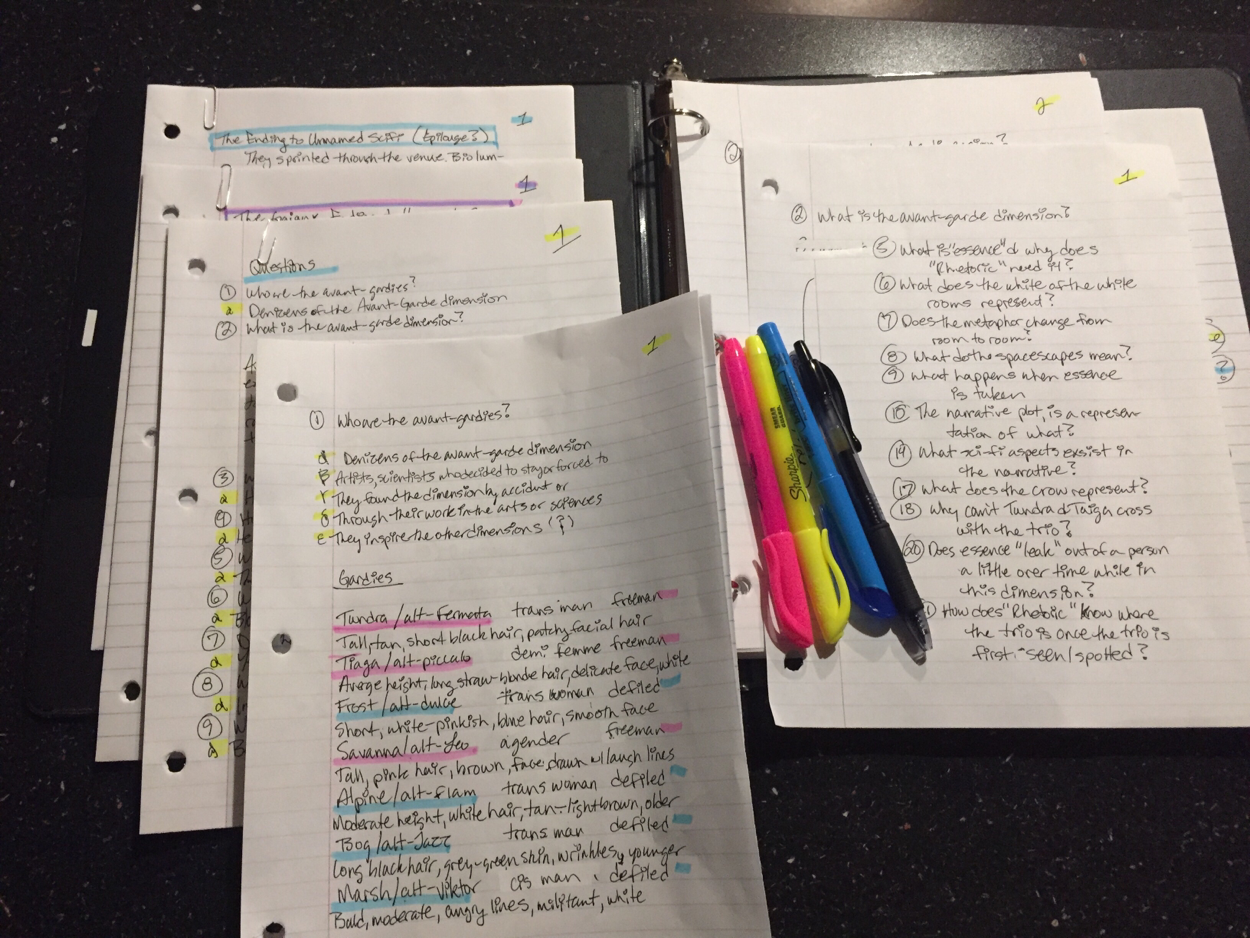 1
The Ending to Unnamed SciFi (Epilouge?)
They sprinted through the venue. Biolum-
1
1
Questions
① Who are the avant-gardies?
a Denizens of the Avant-Garde dimension
② What is the avant-garde dimension?
③
a
④
a
⑤
a
⑥
a
⑦
a
⑧
a
⑨
a
1
① Who are the avant-gardies?
α Denizens of the avant-garde dimension
β Artists, scientists who decided to stay or forced to
γ They found the dimension by accident or
δ Through their work in the arts or sciences
ε They inspire the other dimensions (?)
Gardies
Tundra/alt-Fermata trans man freeman
Tall, tan, short black hair, patchy facial hair
Tiaga/alt-piccalo demi femme freeman
Averge height, long straw-blonde hair, delicate face, white
Frost/alt-dulce trans woman defiled
Short, white-pinkish, blue hair, smooth face
Savanna/alt-Leo agender freeman
Tall, pink hair, brown, face drawn w/laugh lines
Alpine/alt-flam trans woman defiled
Moderate height, white hair, tan-lightbrown, older
Bog/alt-Jazz trans man defiled
Long black hair, grey-green skin, wrinkles, younger
Marsh/alt-viktor cis man defiled
Bald, moderate, angry lines, militant, white
2
②
1
② What is the avant-garde dimension?
⑤ What is "essence" & why does
"Rhetoric" need it?
⑥ What does the white of the white
rooms represent?
⑦ Does the metaphor change from
room to room?
⑧ What do the spacescapes mean?
⑨ What happens when essence
is taken
⑩ The narrative plot, is a represen-
tation of what?
⑭ What sci-fi aspects exsist in
the narrative?
⑰ What does the crow represent?
⑱ Why can't Tundra & Taiga cross
with the trio?
⑳ Does essence "leak" out of a person
a little over time while in
this dimension?
How does "Rhetoric" know where
the trio is once the trio is
first seen/spotted?
Sharpie